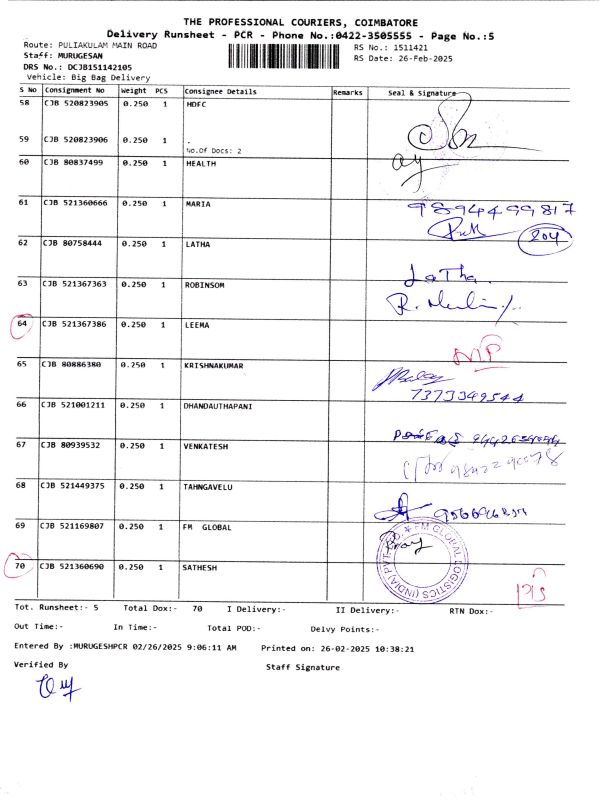 THE PROFESSIONAL COURIERS, COIMBATORE
Delivery Runsheet - PCR - Phone No.:0422-3505555 - Page No.:5
Route: PULIAKULAM MAIN ROAD RS No.: 1511421
Staff: MURUGESAN RS Date: 26-Feb-2025
DRS No.: DCJB151142105
Vehicle: Big Bag Delivery
S No Consignment No Weight PCS Consignee Details Remarks Seal & Signature
58 CJB 520823905 0.250 1 HDFC
59 CJB 520823906 0.250 1 .
No.Of Docs: 2
60 CJB 80837499 0.250 1 HEALTH
61 CJB 521360666 0.250 1 MARIA 9894499817
204
62 CJB 80758444 0.250 1 LATHA
LaTha.
63 CJB 521367363 0.250 1 ROBINSOM
64 CJB 521367386 0.250 1 LEEMA
65 CJB 80886380 0.250 1 KRISHNAKUMAR
7373349544
66 CJB 521001211 0.250 1 DHANDAUTHAPANI
67 CJB 80939532 0.250 1 VENKATESH
68 CJB 521449375 0.250 1 TAHNGAVELU
69 CJB 521169807 0.250 1 FM GLOBAL
FM GLOBAL LOGISTICS (INDIA) PVT
70 CJB 521360690 0.250 1 SATHESH
Tot. Runsheet:- 5 Total Dox:- 70 I Delivery:- II Delivery:- RTN Dox:-
Out Time:- In Time:- Total POD:- Delvy Points:-
Entered By :MURUGESHPCR 02/26/2025 9:06:11 AM Printed on: 26-02-2025 10:38:21
Verified By Staff Signature